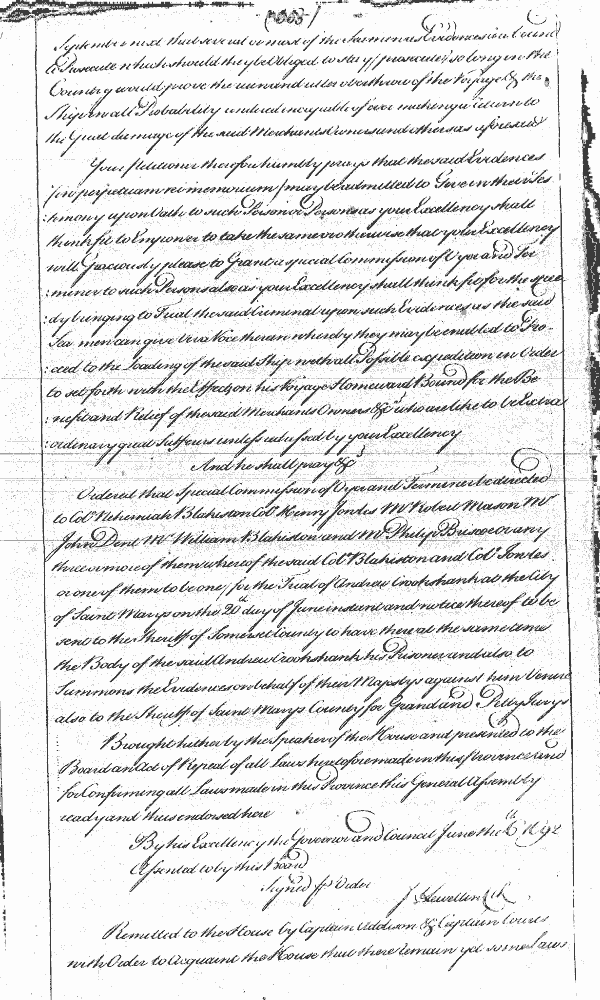 September next that several or most of the Seamen as Evidences in a Council
to Prosecute which should they be Obliged to stay (prosecute) so long in the
Country would prove the ruin and utter overthrow of the Voyage & the
Ship in all Probability rendered incapable of ever making a return to
the Great damage of the said Merchants Owners and others as aforesaid
Your Petitioner therefore humbly prays that the said Evidences
(in perpetuam rei memoriam) may be admitted to Give in their Tes
:timony upon Oath to such Person or Persons as your Excellency shall
think fit to Empower to take the same or otherwise that your Excellency
will Graciously please to Grant a special Commission of Oyer and Ter
:miner to such Persons also as your Excellency shall think fit for the spee
:dy bringing to Tryal the said Criminal upon such Evidences as the said
Sea men can give Viva Voce therein whereby they may be enabled to Pro-
:ceed to the Loading of the said Ship with all Possible expedition in Order
to set forth with the Effects on his Voyage Homeward Bound for the Be
:nefit and Relief of the said Merchants Owners &ca who are like to be Extra
:ordinary great Sufferers unless redressed by your Excellency
And he shall pray &ca
Ordered that Special Commission of Oyer and Terminer be directed
to Col Nehemiah Blakiston Col Henry Jowles Mr Robert Mason Mr
John Dent Mr William Blakiston and Mr Philip Briscoe or any
three or more of them whereof the said Col Blakiston and Col Jowles
or one of them to be one, for the Trial of Andrew Crookshank at the City
of Saint Marys on the 20th day of June instant and notice thereof to be
sent to the Sheriff of Somerset County to have there at the same time
the Body of the said Andrew Crookshank his Prisoner and also to
Summons the Evidences on behalf of their Majestys against him Venire
also to the Sheriff of Saint Marys County for Grand and Petty Jurys
Brought hither by the Speaker of the House and presented to the
Board an Act of Repeal of all Laws heretofore made in this Province and
for Confirming all Laws made in this Province this General Assembly
ready and thus endorsed here
By his Excellency the Governor and Council June the 6th 1692
Assented to by this Board
Signed p Order
J Llewellen Clk
Remitted to the House by Captain Addison & Captain Courts
with Order to Acquaint the House that there remain yet some Laws